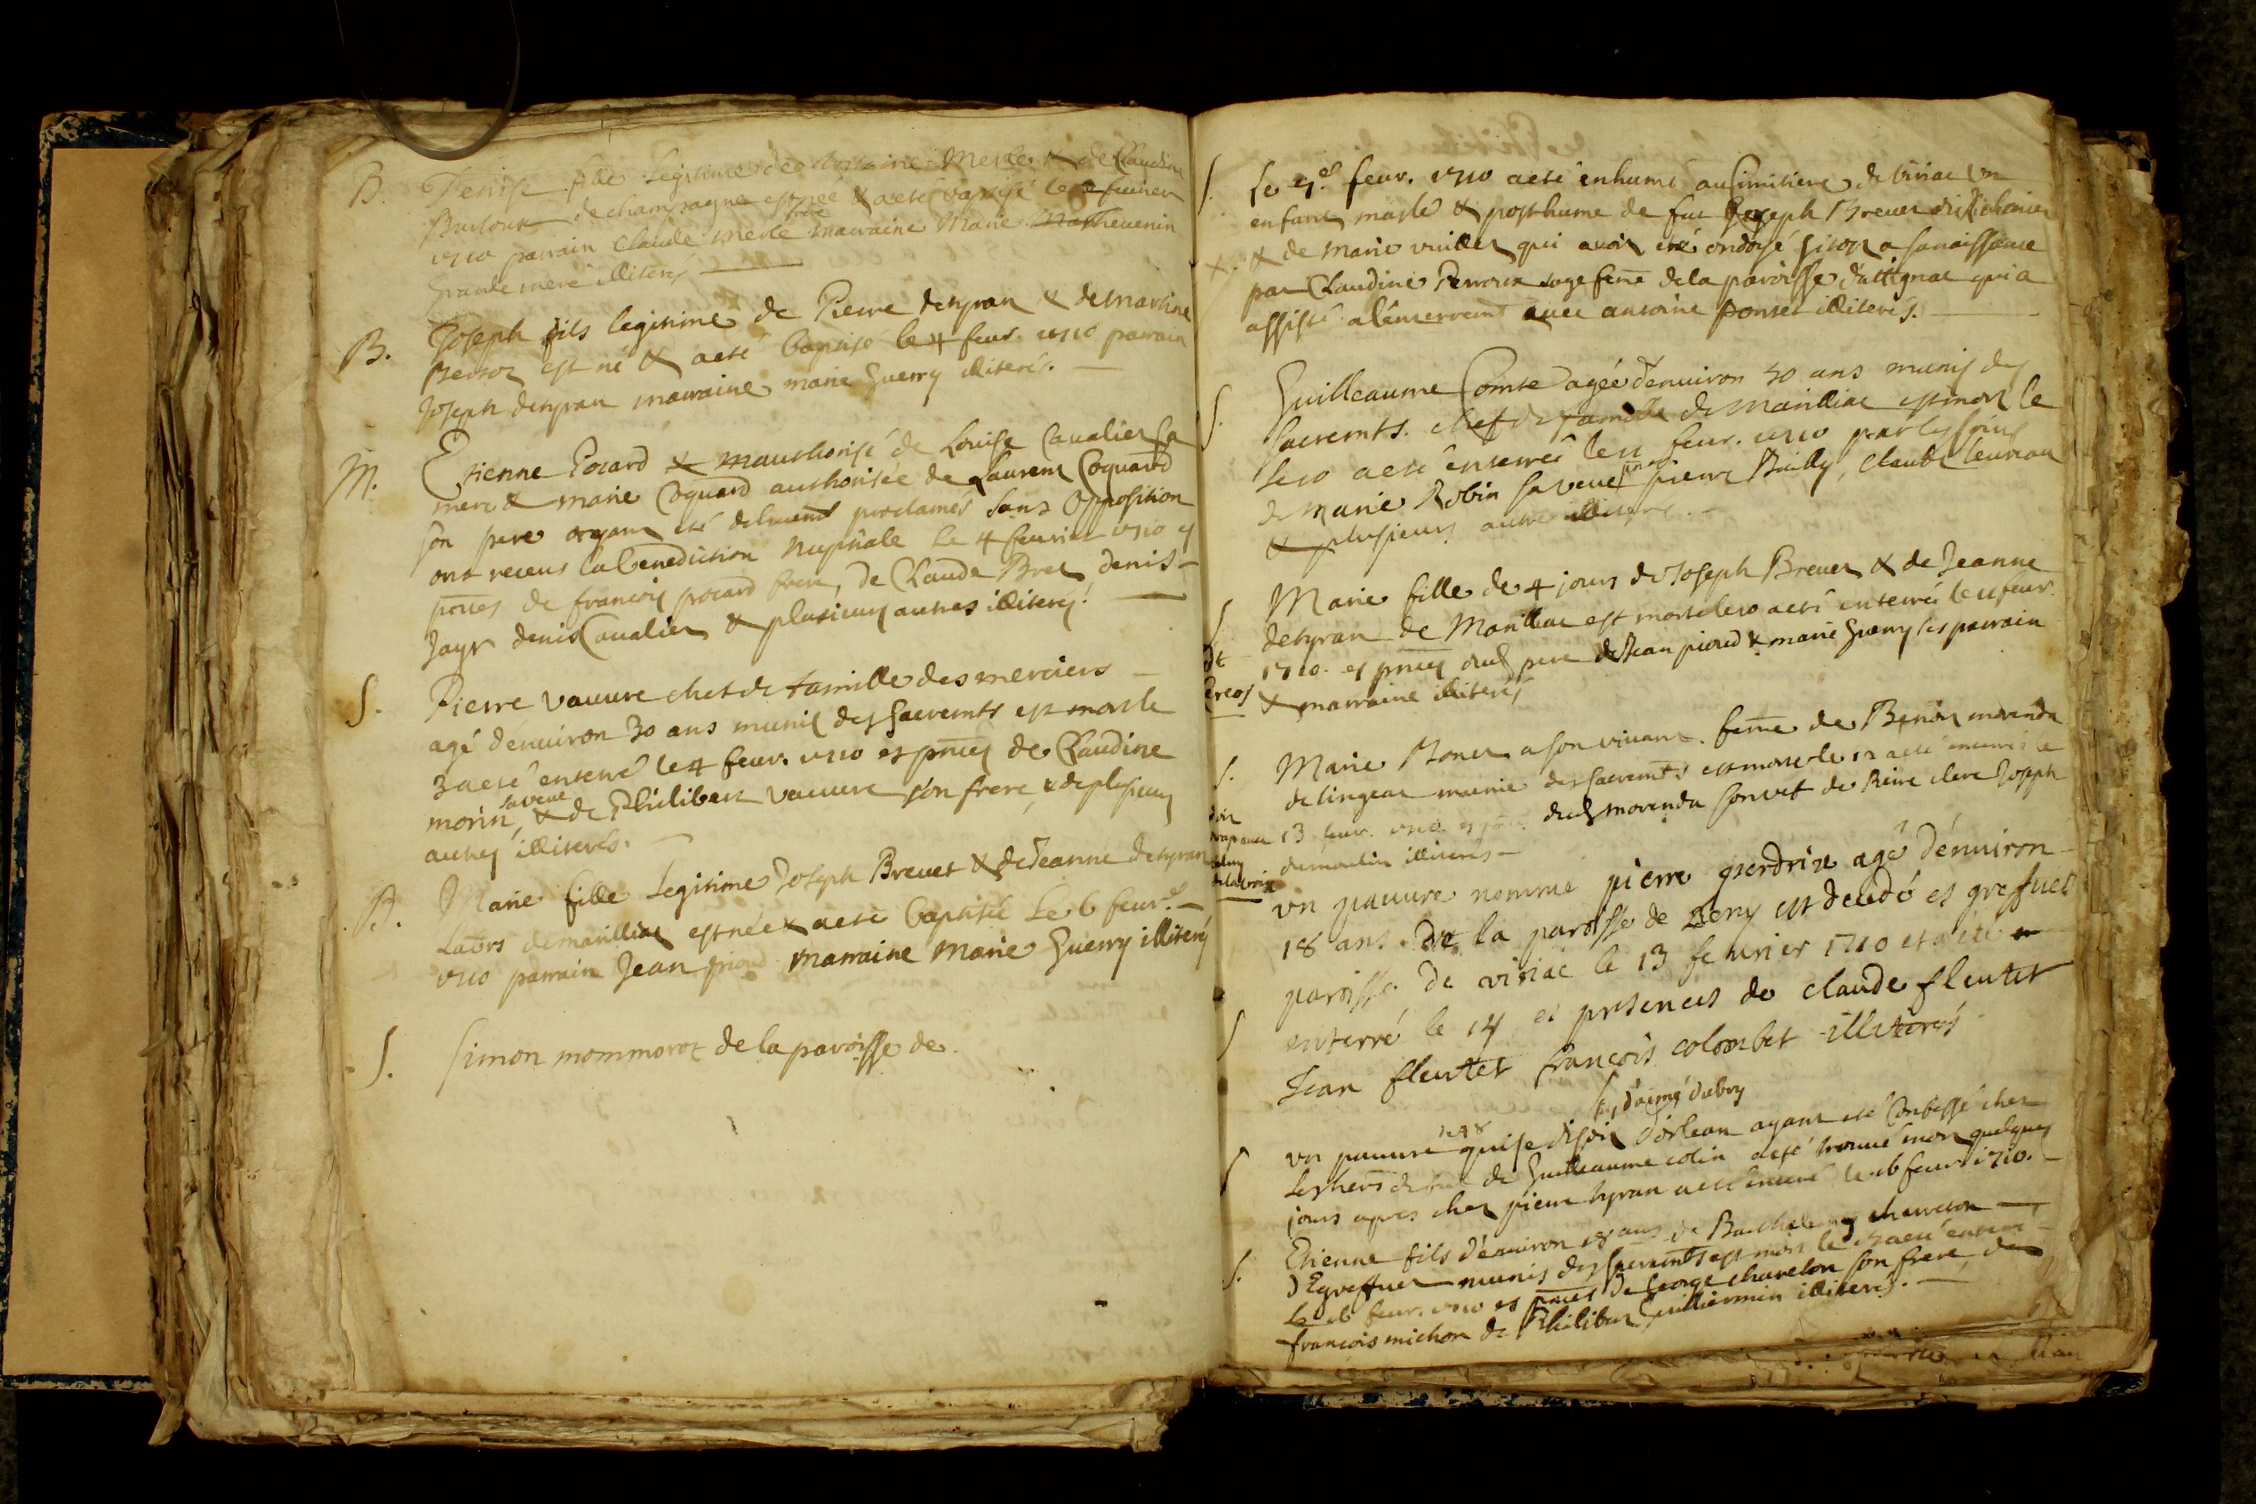 B. Denise fille Legitime de Antoine Merle & de Claudine
Burloux de champagne est née & a eté baptisé le 2 fevrier
1710 parrain Claude Merle frere marraine Marie Mathevenin
grande mere illiterés
B. Joseph fils legitime de Pierre detyran & de martine
est né & a eté baptisé le 4 feur. 1710 parrain
Joseph detyran marraine marie Guerry illiterés.
M. Etienne Pocard & mauthorisé de Louise Cavalier sa
mere & marie Coquard authorisée de Laurent Coquard
son pere ayant eté duement proclamés sans Opposition
ont receus la benediction Nuptiale le 4 feurier 1710 es
pntes de francois pocard frere, de Claude Bret, denis
Jayr denis Cavalier & plusieurs autres illiterés.
S. Pierre vauure chef de famille des merciers
agé d'enuiron 30 ans munis des sacremts est mort le
3 a eté enterré le 4 feur. 1710 es pnces de Claudine
morin, sa veue & de Philibert vauure son frere, & de plusieurs
autres illiterés.
B. Marie fille Legitime Joseph Brevet & de Jeanne detyran
Labors de marilliat est née & a eté baptisée Le 6 feur.
1710 parrain Jean piroud marraine Marie Guerry illiterés
S. Simon mommorot de la paroisse de
S. Le 7e feur. 1710 a eté enhumé au simitiere de viriat un
enfant masle & posthume de fut Joseph Brevet
& de Marie vuillet qui avoit eté ondoyé sitot a sa naissance
par Claudine Perroux sage feme de la paroisse d'attignat qui a
assisté a l'enterrement avec antoine ponset illiterés.
S. Guilleaume Comte agée d'enuiron 50 ans munis des
sacremts. chef de famille de Marilliat est mort le
le 10 a eté enterrée le 11 feur. 1710 par les soins
de Marie Robin sa veue pnt pierre Bailly, claude leureau
& plusieurs autre illiterés.
S Marie fille de 4 jours de Joseph Brevet & de Jeanne
detyran de Marillat est morte le 10 a eté enterrée le 11 feur.
1710. es pnces dud pere de Jean piroud & marie Guerry ses parrain
& marraine illiterés
S. Marie Bonet a son vivant. feme de Benoit morendu
de lingeat munie des sacremts est morte le 12 a eté enterrée le
13 feur. 1710 es pnces dud morendu son vef de Reine clere Joseph
dumoulin illiterés
S un pauure nommé pierre perdrix agé d'enuiron
18 ans de la paroisse de Beny est decedé es greffuet
paroisse de viriat le 13 feurier 1710 et a eté
enterré le 14 es presences de claude fleutet
Jean fleutet francois colombet illiterés
S un pauure qui se disoit d'orlean ayant eté Confessé chez
de Guilleaume colin a eté trouué mort quelques
jours apres chez pierre tyran a eté enterré le 16 feur. 1710.
S. Etienne fils d'enuiron 18 ans de Barthelemy chaveton
d'Egreffuet munis des sacremts est mort le 15 a eté enterré
Le 16 feur. 1710 es pnces de George chaveton son frere, de
francois michon de Philibert Guilliermin illiterés.